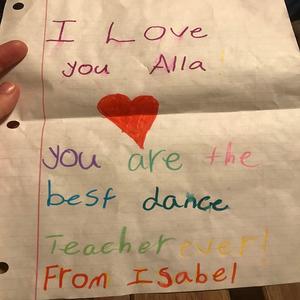 I Love
you Alla!
you are the
best dance
Teacher ever!
From Isabel